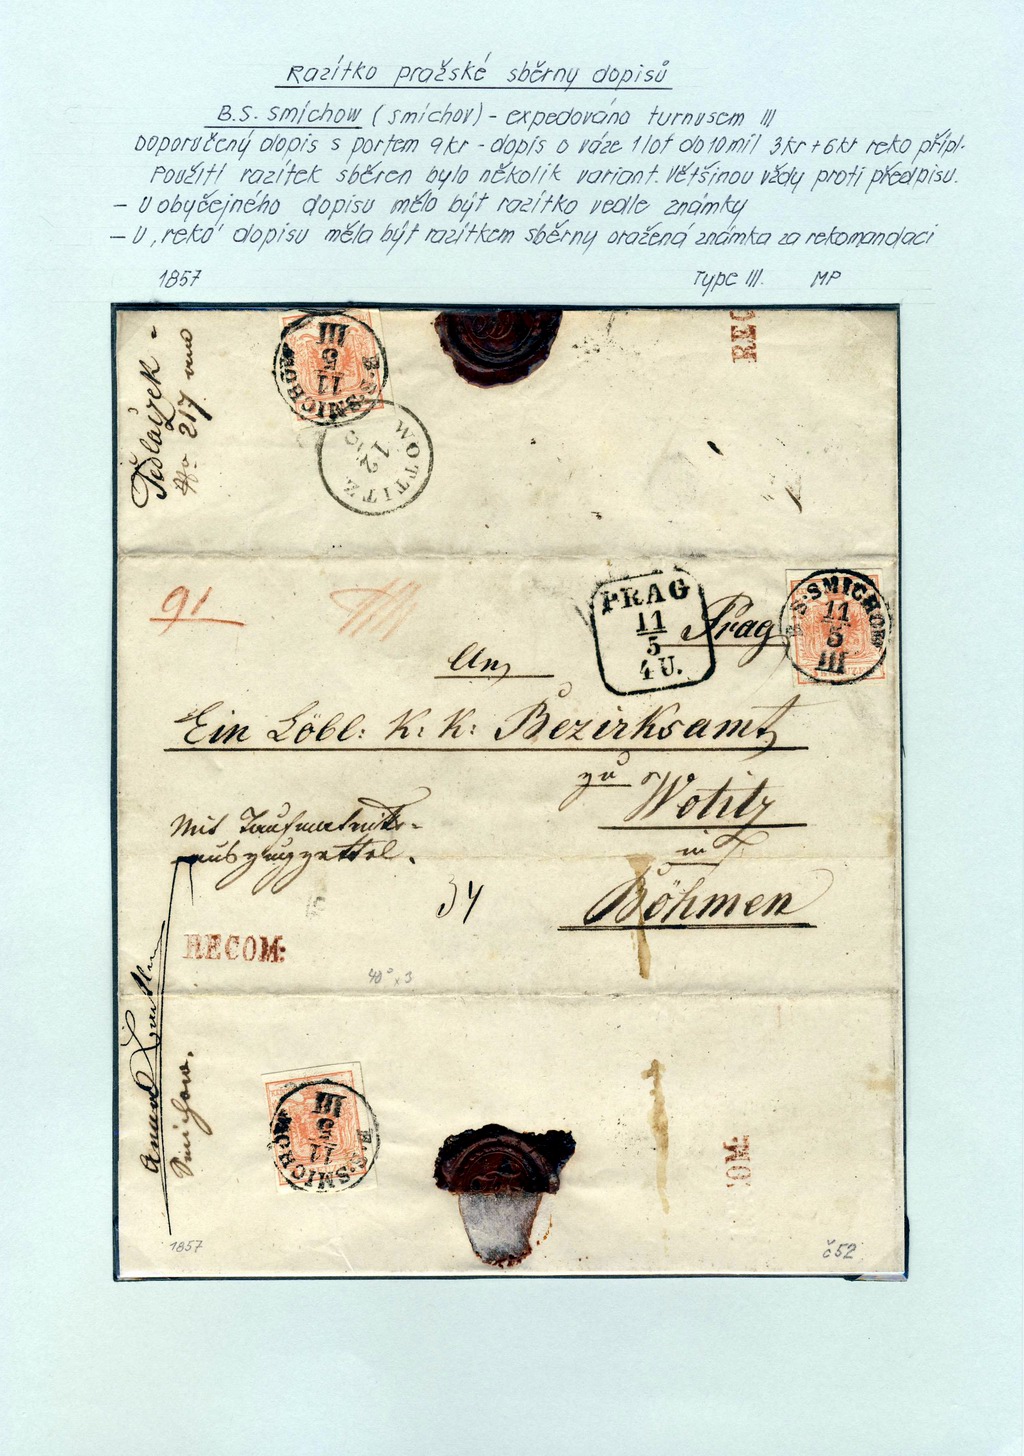 Razítko pražské sběrny dopisů
B.S. Smíchow (Smíchov) - expedováno turnusem III
Doporučený dopis s portem 9kr - dopis o váze 1 lot do 10 mil 3kr + 6kr reko přípl.
Použití razítek sběren bylo několik variant. Většinou vždy proti předpisu.
- U obyčejného dopisu mělo být razítko vedle známky
- U 'reko' dopisu měla být razítkem sběrny oražená známka za rekomandaci
1857 Type III. MP
No. 217
B.S. SMICHOW
11
5
III
RECO
WOTTITZ
12
5
91
PRAG
11
5
4 U.
Prag
B.S. SMICHOW
11
5
III
An
Ein Löbl: K: K: Bezirksamt
zu
Wotitz
in
Böhmen
Mit Taufmatriks-
auszugzettel.
34
RECOM:
40° x 3
Smichow.
B.S. SMICHOW
11
5
III
OM:
1857
č 52